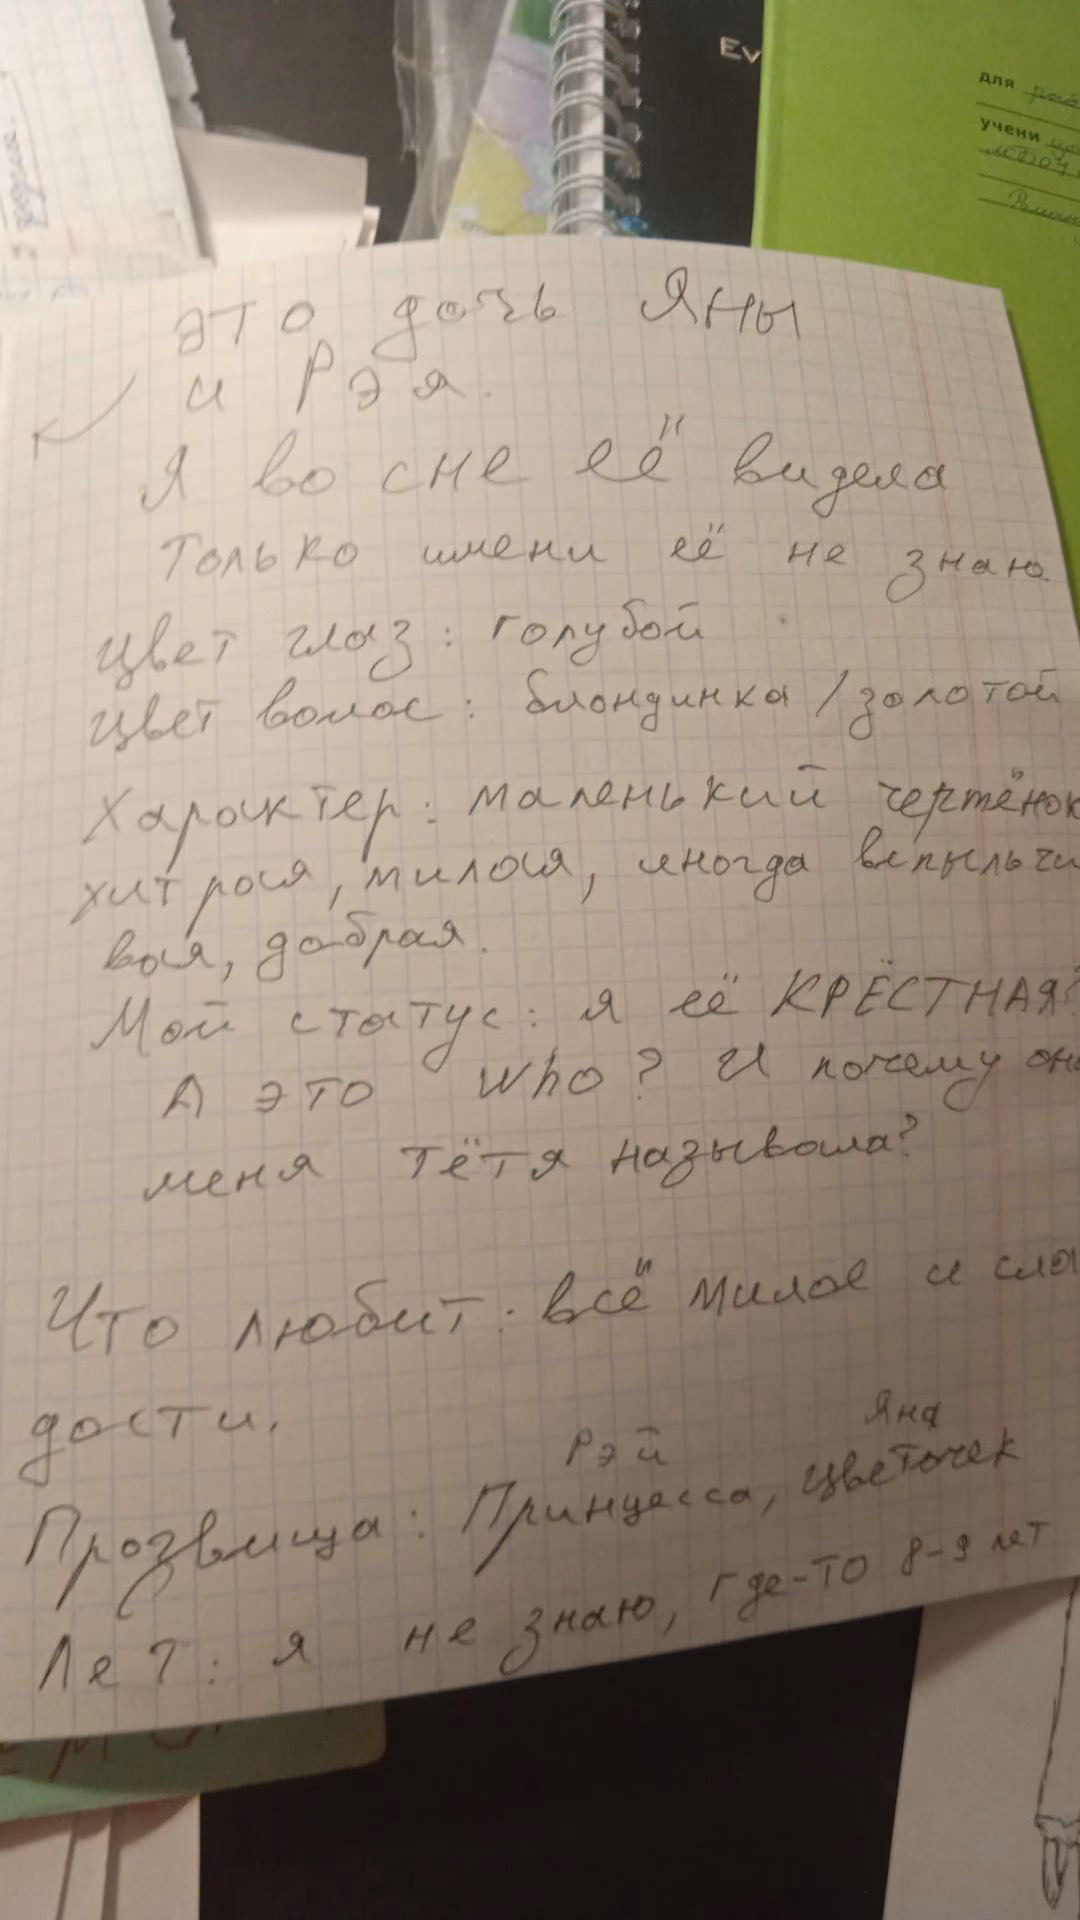 Ev
для
учени
это дочь Яны
и Рэя.
Я во сне её видела
Только имени её не знаю.
Цвет глаз: голубой
Цвет волос: блондинка / золотой
Характер: маленький чертёнок
хитрая, милая, иногда вспыльчи
вая, добрая.
Мой статус: я её КРЁСТНАЯ?
А это who? И почему она
меня тётя называла?
Что любит: всё милое и сла
дости.
Рэй Яна
Прозвища: Принцесса, цветочек
Лет: я не знаю, где-то 8-9 лет